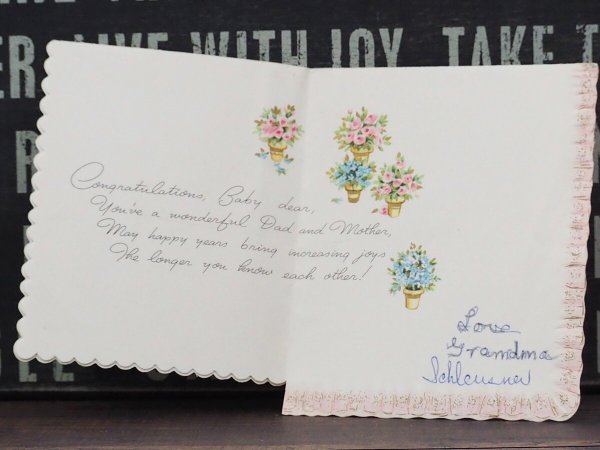 LIVE WITH JOY TAKE T
Congratulations, Baby dear,
You've a wonderful Dad and Mother,
May happy years bring increasing joys
The longer you know each other!
Love
Grandma
Schleusner